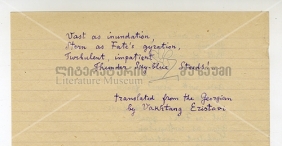 Vast as inundation,
Stern as Fate's gyration,
Turbulent, impatient
Thunder Sky-Blue Steeds!
ლიტერატურის მუზეუმი
Literature Museum
translated from the Georgian
by Vakhtang Eristavi